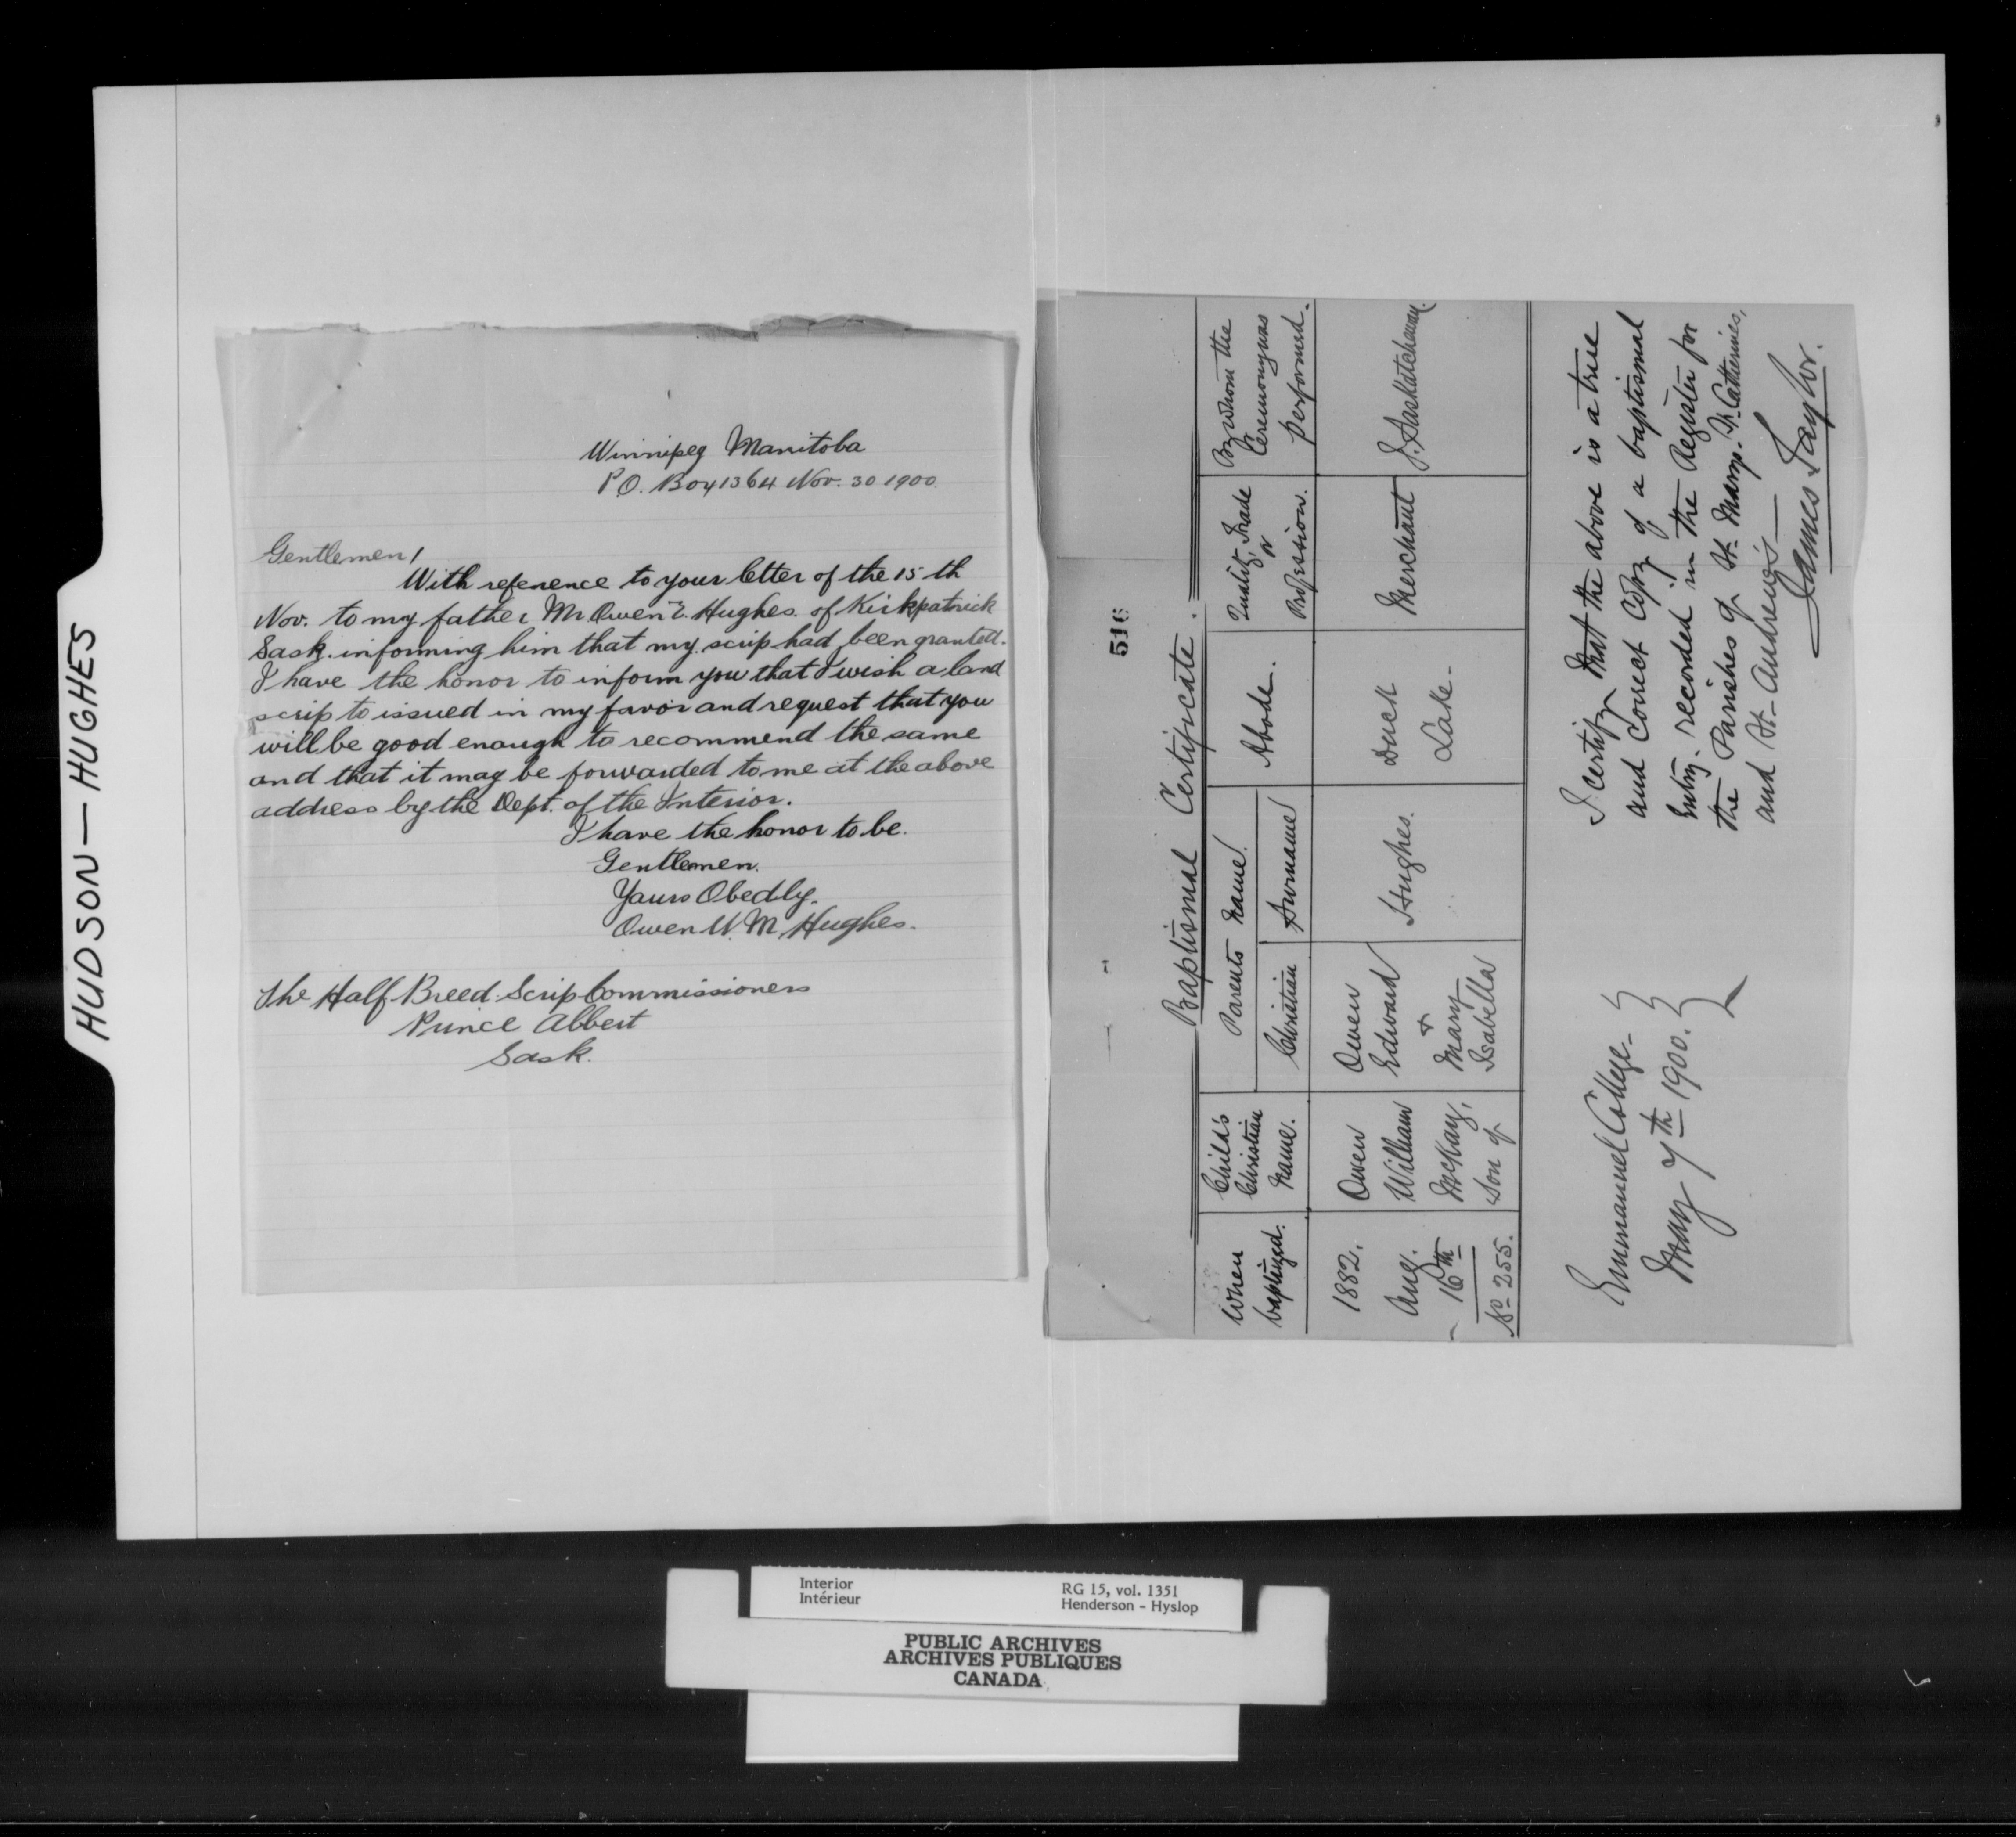 HUDSON — HUGHES
Winnipeg Manitoba
P.O. Box 1364 Nov. 30 1900
Gentlemen,
With reference to your letter of the 15th
Nov. to my father Mr Owen E. Hughes. of Kirkpatrick
Sask. informing him that my scrip had been granted.
I have the honor to inform you that I wish a land
scrip to issued in my favor and request that you
will be good enough to recommend the same
and that it may be forwarded to me at the above
address by the Dept. of the Interior.
I have the honor to be.
Gentlemen.
Yours Obedly.
Owen W. M. Hughes.
The Half Breed Scrip Commissioners
Prince Albert
Sask.
516
Baptismal Certificate.
When
baptized.
Child's
Christian
Name.
Parents Name.
Christian
Surname
Abode.
Quality, Trade
or
Profession.
By whom the
Ceremony was
performed.
1882.
Aug.
16th
No 255.
Owen
William
McKay,
Son of
Owen
Edward
+
Mary
Isabella
Hughes.
Duck
Lake.
Merchant
J. Saskatchewan.
I certify that the above is a true
and correct copy of a baptismal
Entry recorded in the Register for
the Parishes of St. Mary's. St. Catherines,
and St. Andrew's—
James Taylor.
Emmanuel College.
May 7th 1900.
Interior
Intérieur
RG 15, vol. 1351
Henderson - Hyslop
PUBLIC ARCHIVES
ARCHIVES PUBLIQUES
CANADA